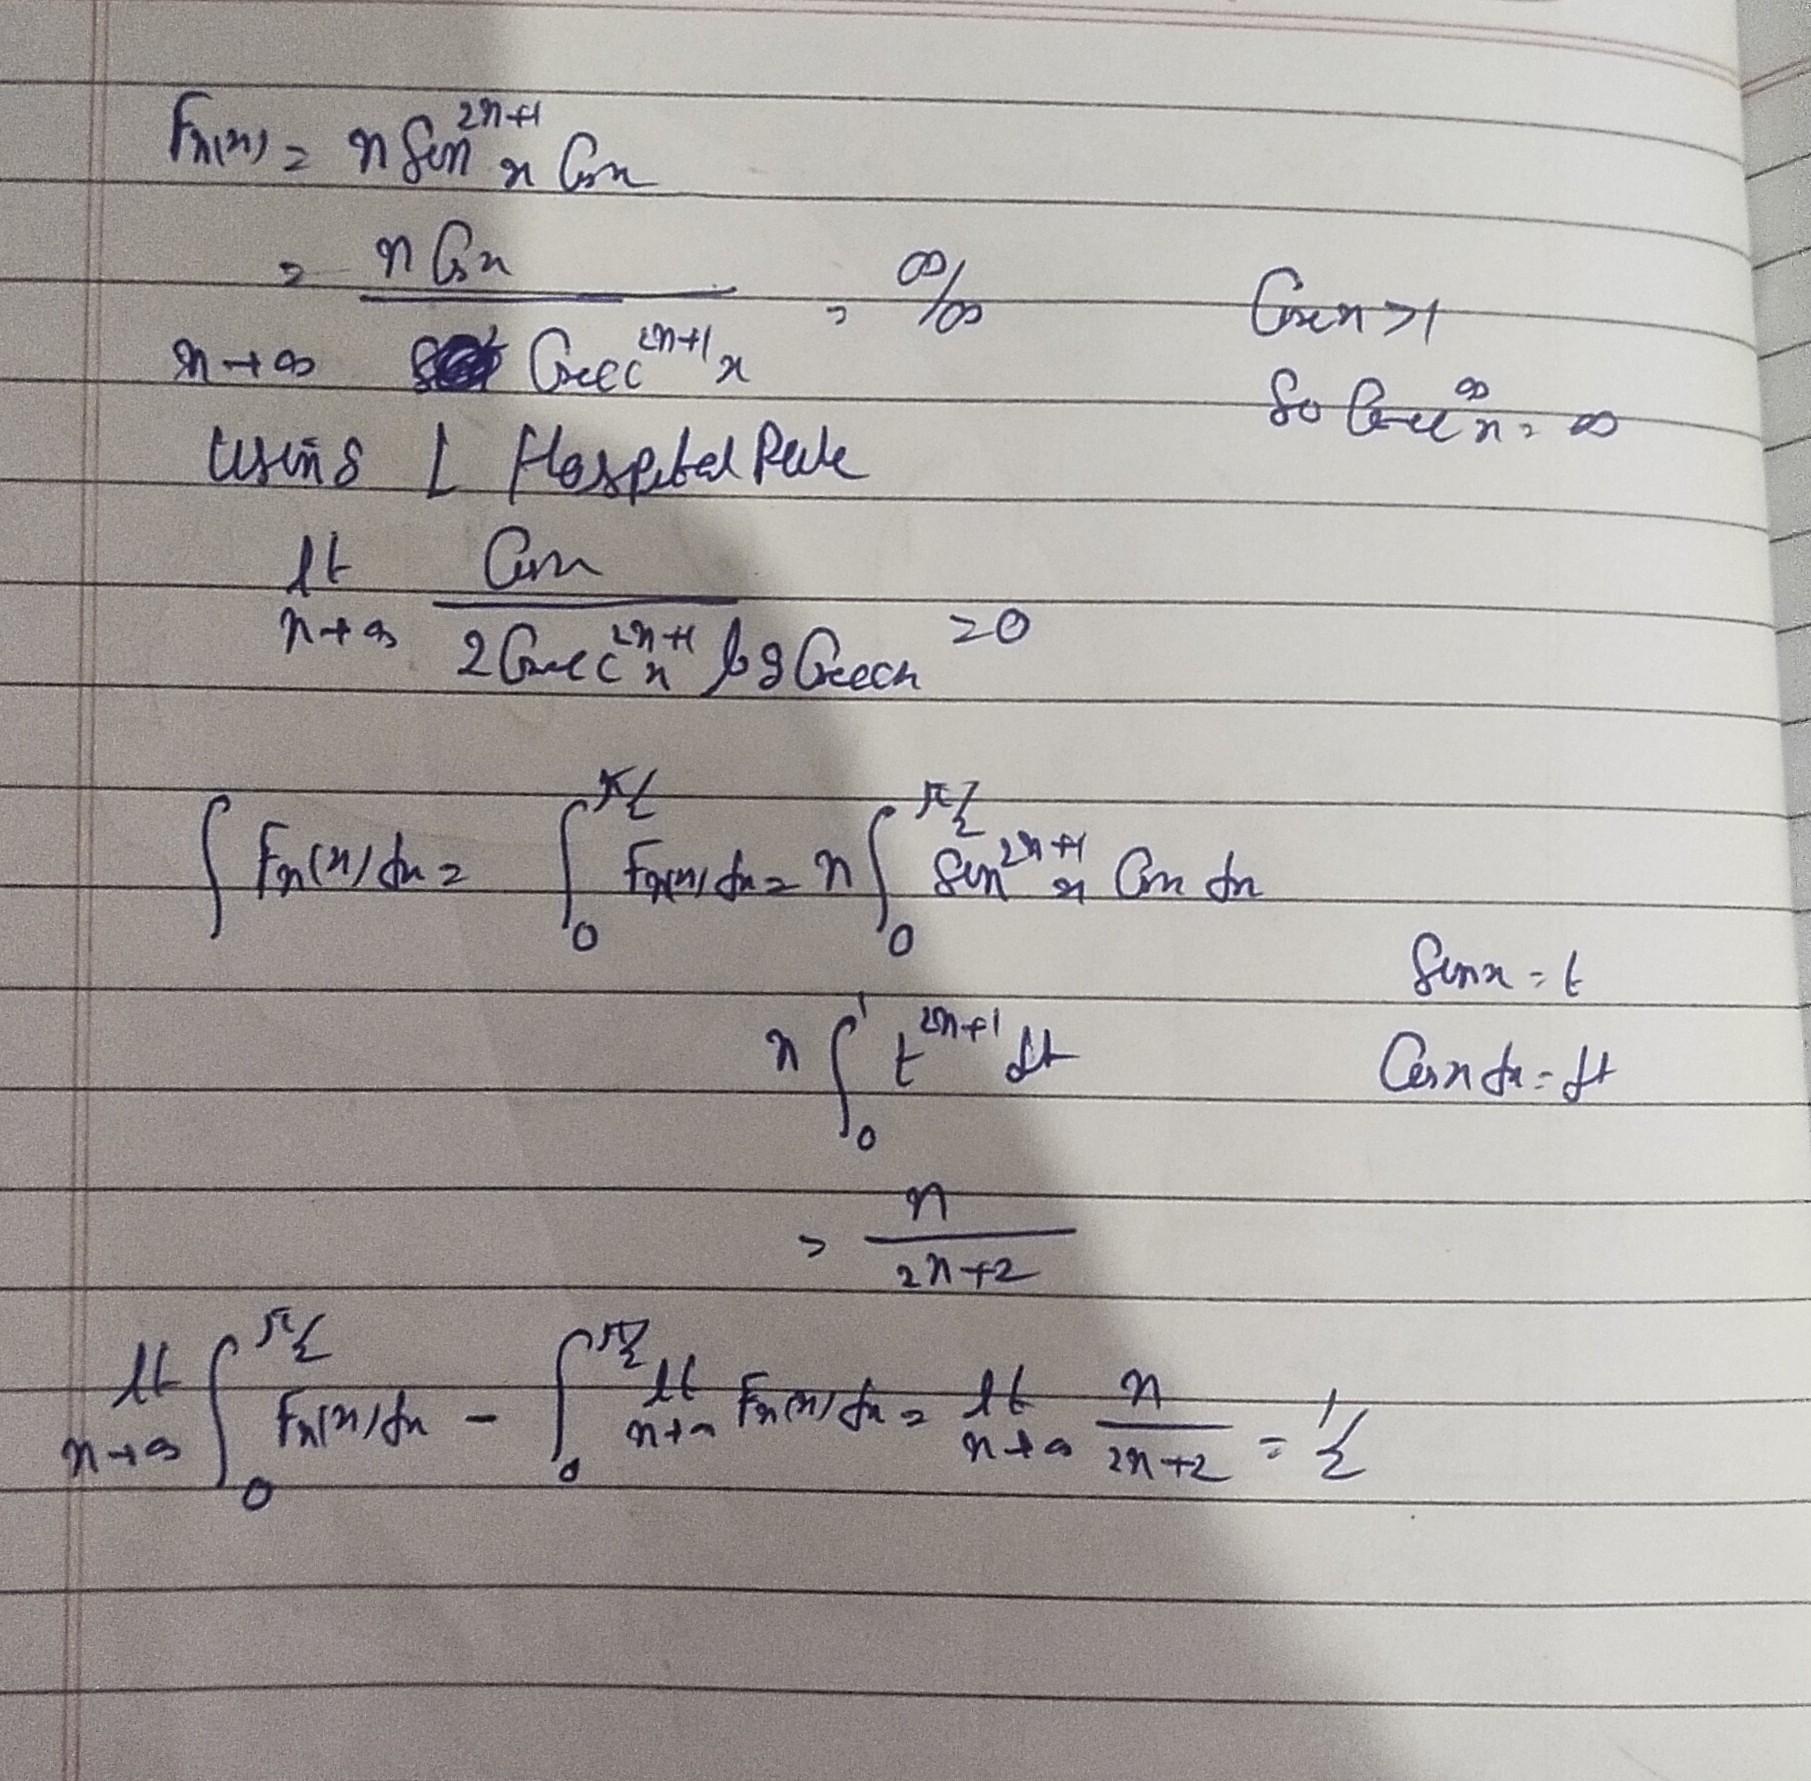 Fn(x) = n Sin^{2n+1} x Cos x
= n Cos x / Cosec^{2n+1} x = ∞/∞ Cosec x > 1
n→∞ So Cosec^∞ x = ∞
Using L Hospital Rule
lt n→∞ Cos x / 2 Cosec^{2n+1} x log Cosec x = 0
∫ Fn(x) dx = ∫_0^{π/2} Fn(x) dx = n ∫_0^{π/2} Sin^{2n+1} x Cos x dx
Sin x = t
n ∫_0^1 t^{2n+1} dt Cos x dx = dt
= n / 2n+2
lt n→∞ ∫_0^{π/2} Fn(x) dx - ∫_0^{π/2} lt n→∞ Fn(x) dx = lt n→∞ n / 2n+2 = 1/2